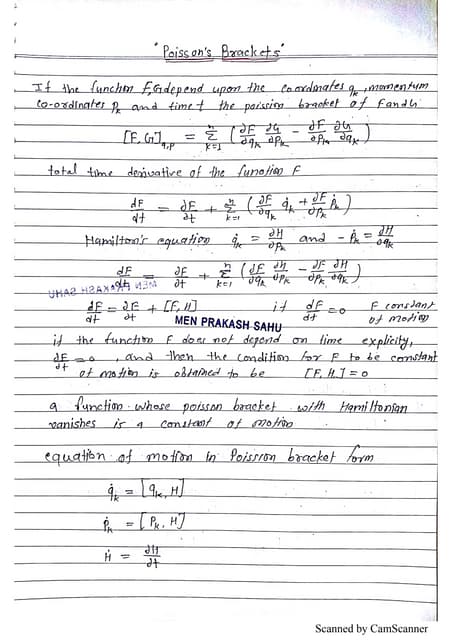 "Poisson's Brackets"
If the function F,G depend upon the coordinates qk, momentum
co-ordinates Pk and time t the poission bracket of F and G.
[F, G]q,p = n Σ k=1 (∂F/∂qk ∂G/∂Pk - ∂F/∂Pk ∂G/∂qk)
total time derivative of the function F
dF/dt = ∂F/∂t + n Σ k=1 (∂F/∂qk q̇k + ∂F/∂Pk Ṗk)
Hamilton's equation q̇k = ∂H/∂Pk and - Ṗk = ∂H/∂qk
dF/dt = ∂F/∂t + n Σ k=1 (∂F/∂qk ∂H/∂Pk - ∂F/∂Pk ∂H/∂qk)
MEN PRAKASH SAHU
dF/dt = ∂F/∂t + [F, H] if dF/dt = 0 F constant of motion
MEN PRAKASH SAHU
if the function F does not depend on time explicity,
∂F/∂t = 0, and then the condition for F to be constant
of motion is obtained to be [F, H] = 0
a function whose poisson bracket with Hamiltonian
vanishes is a constant of motion
equation of motion in Poission bracket form
q̇k = [qk, H]
Ṗk = [Pk, H]
Ḣ = ∂H/∂t
Scanned by CamScanner